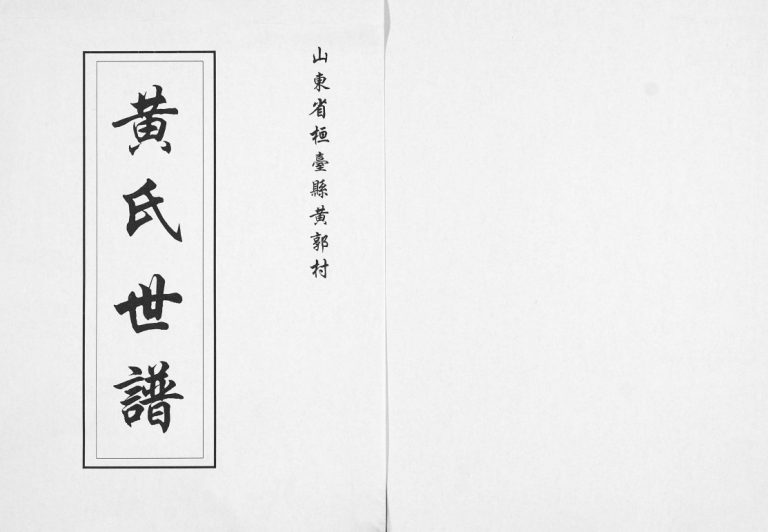 山東省桓臺縣黄郭村
黄氏世譜